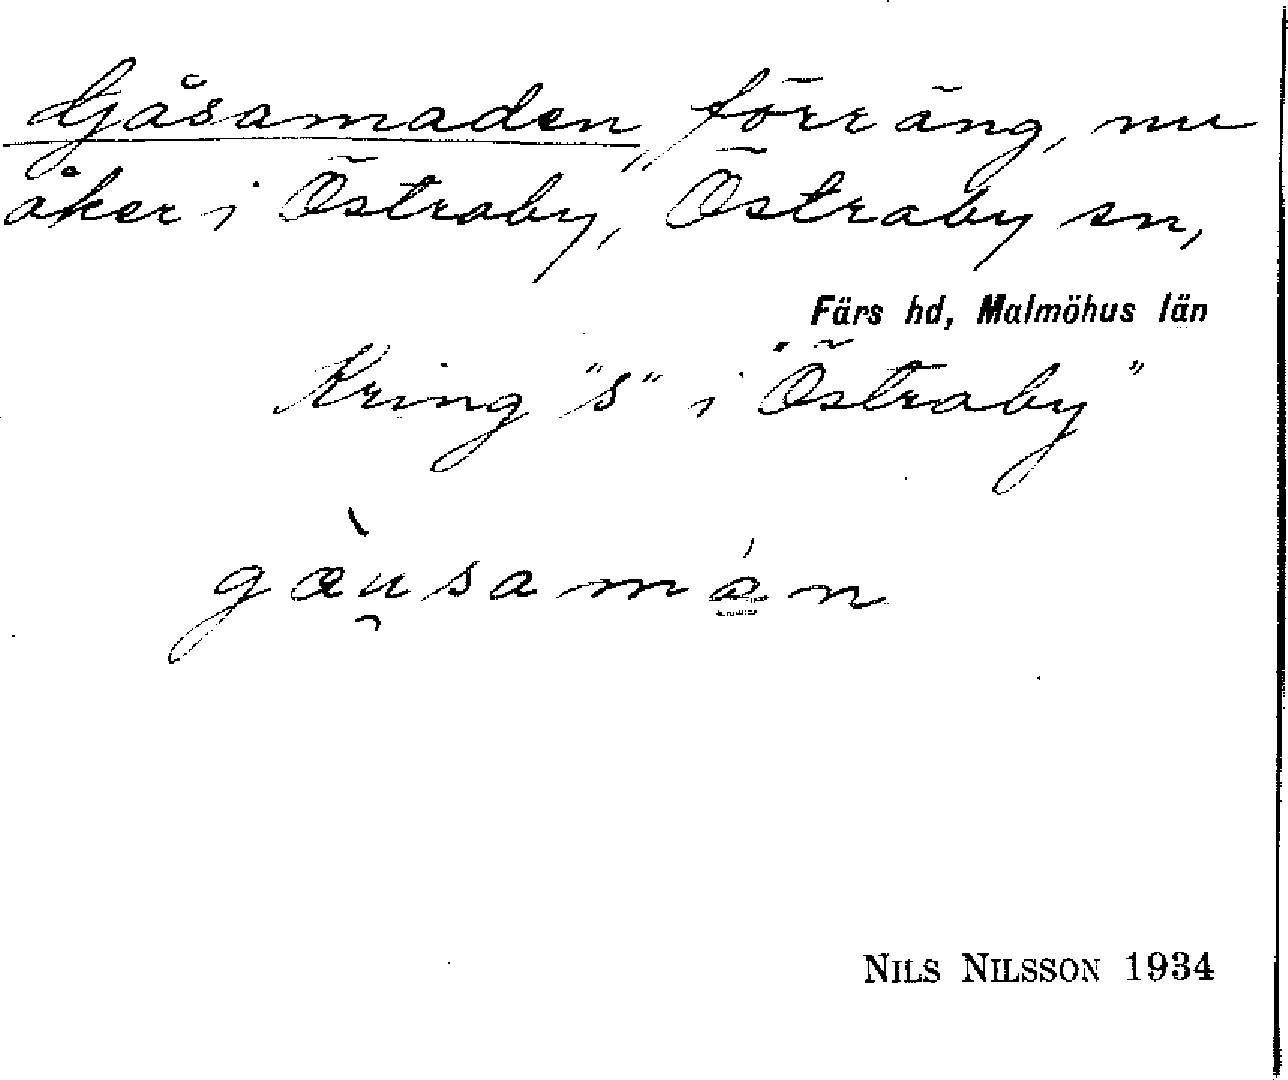 Gåsamaden, förr äng, nu
åker i Östraby, Östraby sn,
Färs hd, Malmöhus län
Kring "s" i "Östraby"
gæ̀u̯samán
NILS NILSSON 1934